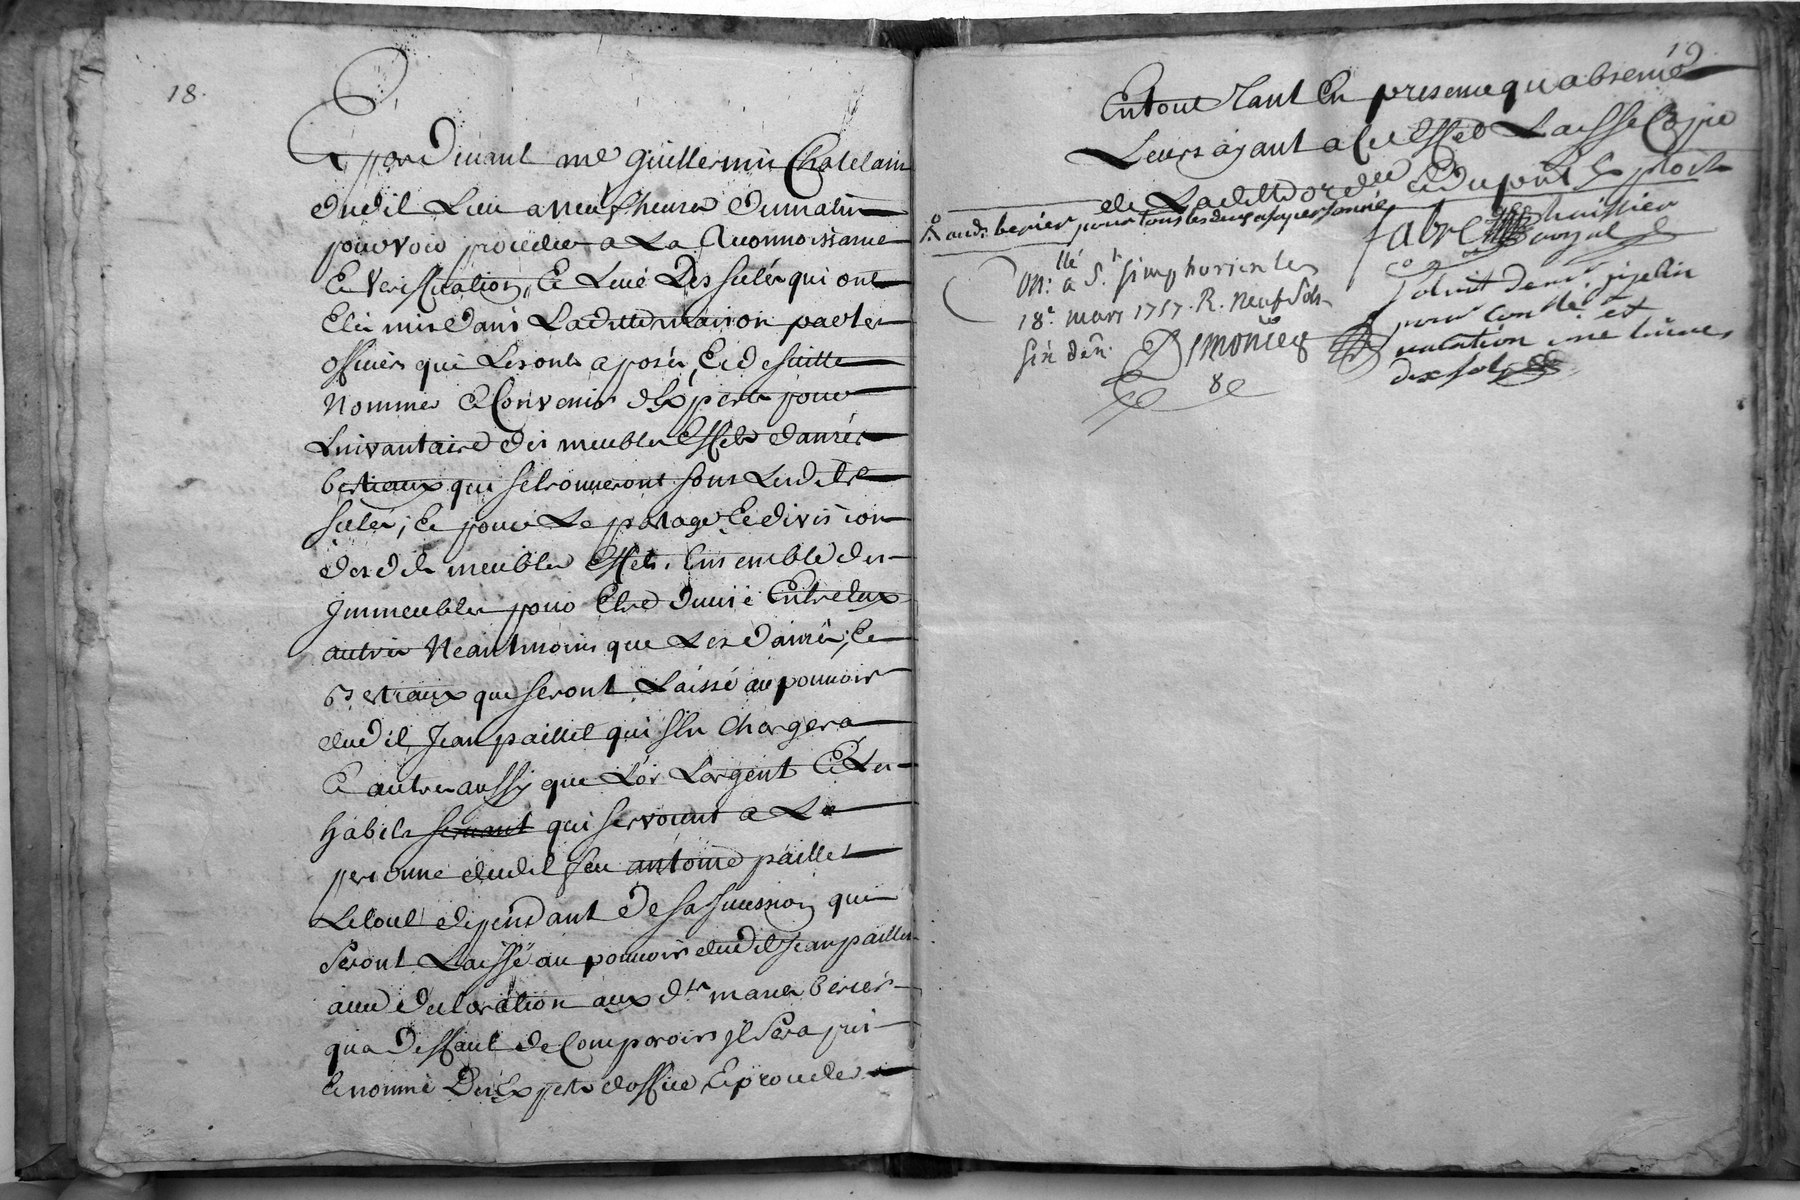 18.
Et par devant me Guillermin Chatelain
dudit Lieu a neuf heures du matin
pour voir proceder a La Reconnoissance
Et veriffication, Et Levé Des scelés qui ont
Eté mis dans Laditte maison par les
officiers qui Les ont aposés, Et de suitte
Nommer Et Convenir d'Experts pour
Linvantaire des meubles Effets danrées
bestiaux qui se trouveront sous Lesdits
scelés; Et pour Le partage Et division
desdits meubles Effets. Ensemble des
Immeubles pour Etre Entre Eux
autres Neantmoins que Les Danrées, Et
Bestiaux que seront Laissé au pouvoir
dudit Jean paillet qui s'En Chargera
Et autres aussy que L'or L'argent Et Les
habits servant qui servoient a La
personne dudit feu antoine paillet
Le tout dependant De sa sucession qui
seront Laissé au pouvoir dudit Jean paillet
avec declaration aux dts maries berier
qua Deffaut de Comparoir jl sera pris
Et nommé Des Experts doffice, Et procedé
19.
En tout Tant En presence qu'absence
Leurs ayant a Cet Effet Laissé Coppie
de Laditte ordce Et du put Exploit
aud. berier pour tous les deux a sa personne
fabre huissier
royal
Onllé a St. simphorien le
18e. mars 1757. R. neuf sols
six den.
Simonier
8e
pour Con et
une livres
dix sols